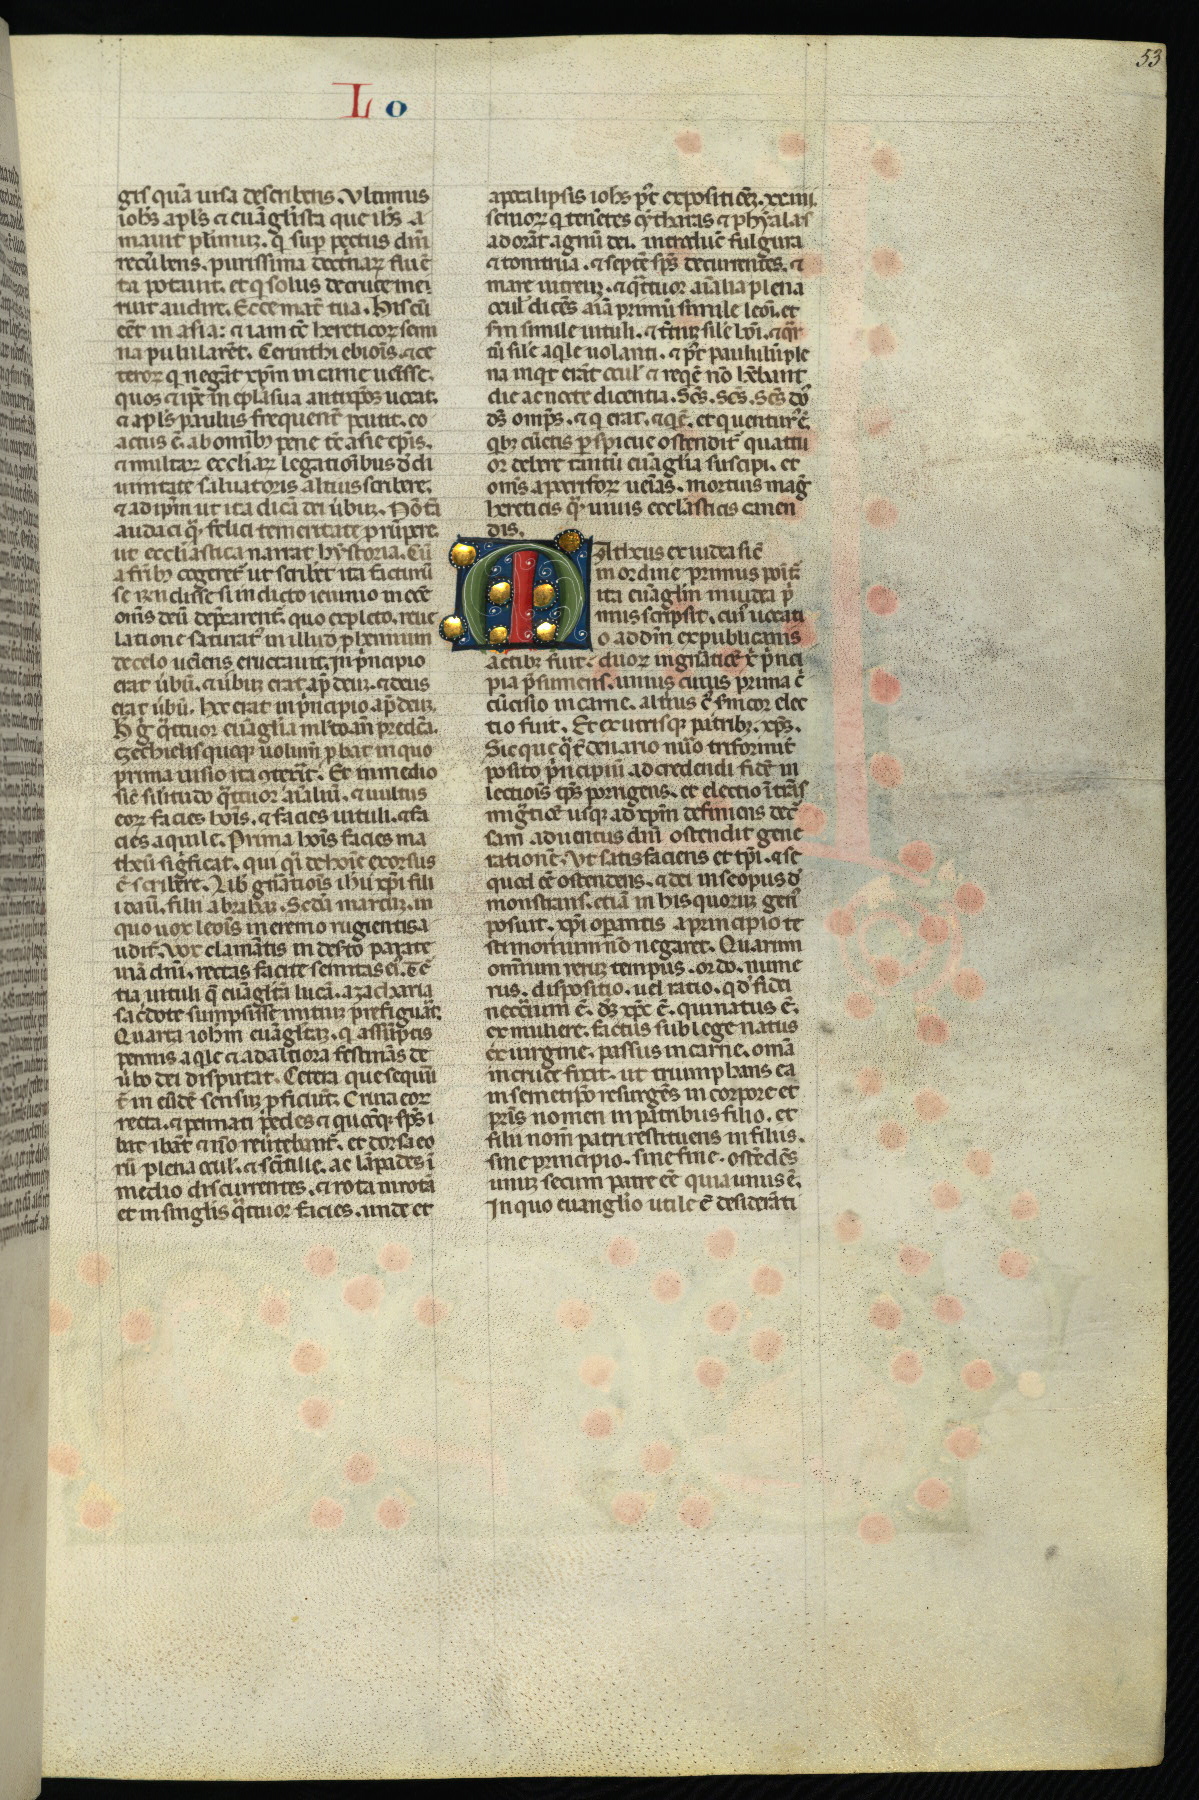 53
L o
gis quā uisa describens. Vltimus
iohs apls & euāglista que ihs a
mauit plurimuz. q sup pectus dn̄i
recūbens. purissima doctrinaꝝ fluē
ta potauit. et q solus de cruce me
ruit audire. Ecce mat̄ tua. Hic cū
eēt in asia: & iam tc̄ hereticoꝝ semi
na pubularēt. Cerinthi ebiois. & ce
teroꝝ q negāt xp̄m in carne uenisse.
quos & ip̄e in epl̄a sua antixpos uocat.
& apl̄s paulus frequent̄ pcutit. co
actus ē. ab omībꝫ pene tc̄ asie ep̄is.
& multaꝝ eccliaꝝ legatioībus d̄ di
uinitate saluatoris altius scribere.
& ad ip̄m ut ita dicā dei u̇buꝫ. nō tā
audaci q̄. felici temeritate prūpere.
ut eccliastica narrat hystoria. Cū
a fr̄ibꝫ cogeret̄ ut scribēt ita facturū
se rn̄disse si indicto ieiunio in cōe
om̄s deū dep̄carent̄. quo expleto. reue
latione saturat᷒ in illud phemium
de celo ueniens eructauit. In p̄ncipio
erat u̇bū. & u̇buꝫ erat ap̄ deuꝫ. & deus
erat u̇bū. hoc erat in p̄ncipio ap̄ deuꝫ.
H̄ g̊ q̄ttuor euāglia ml̄to an̄ predc̄a.
ezechielis quoqꝫ uolum̄ p̄bat in quo
prima uisio ita 9texit᷒. Et in medio
sic̄ silitudo q̄ttuor aīaliū. & uultus
eoꝝ facies hoīs. & facies uituli. & fa
cies aquile. Prima hoīs facies ma
theū significat. qui q̄i de hoīe exorsus
ē scribere. Lib gn̄atiois ihū xp̄i filii
dauid. filii abrahaꝫ. Secūda marcuꝫ. in
quo uox leoīs in eremo rugientis a
udit᷒. Vox clamātis in desto parate
uiā dn̄i. rectas facite semitas ei᷒. T̄c̄
tia uituli q̄ euāgl̄tā lucā. a zacharia
sac̄dote sumpsisse inituꝫ prefigurat.
Quarta iohm̄ euāgl̄taꝫ. q assūptis
pennis aqle & ad altiora festinās de
u̇bo dei disputat. Cetera que sequūt᷒
in eūdē sensuꝫ proficiūt. Crura eoꝝ
recta. & pennati pedes & quocūqꝫ sp̄s i
bat ibāt & nō reu̇tebant᷒. et dorsa eo
rū plena oculis. & scītille. ac lāpades ī
medio discurrentes. & rota in rota
et in singlis q̄ttuor facies. unde et
apocalipsis iohs p̄t expositioēꝫ. xxiiii.
senioꝝ q tenētes cytharas & phyalas
adorāt agnū dei. introduc̄ fulgura
& tonitrua. & septē sp̄s decurrentes. &
mare uitreuꝫ. & q̄ttuor aīalia plena
ocul᷒ dicēs aīal primū simile leoī. et
sm̄ simile uituli. & t̄tiuꝫ sile hoī. & q̄r
tū sile aqle uolanti. & p̄t paululū ple
na inqt erāt ocul᷒ & reqē nō hēbant
die ac nocte dicentia. Scs̄. Scs̄. Scs̄ do᷒
ds̄ omīps̄. & q erat. & q ē. et q uentur᷒ ē.
qbꝫ cūctis pspicue ostendit᷒ quattu
or debere tantū euāglia suscipi. et
om̄s apocrifoꝝ nenias. mortuis mag̊
hereticis q̄. uiuis ecclāsticis canen
dis.
Matheus ex iudea sic̄
in ordine primus ponit᷒
ita euāgliū in iudea p̊
mus scripsit. cui᷒ uocati
o ad dm̄ ex publicanis
actibꝫ fuit. duoꝝ in gn̄atioē xp̄i p̄nci
pia p̄sumens. unius cuius prima c̊
cūcisio in carne. altius c᷒ sm̄ cor elec
tio fuit. Et ex utrisqꝫ patribꝫ. xp̄s.
Sicque q̄t̄denario nūo triformit̄
posito p̄ncipiū ad credendi fidē in
lectiois tp̄s porrigens. et electioē ī trās
migrtioē usqꝫ ad xp̄m definiens dec᷒
sam aduentus dn̄i ostendit gene
rationē. Vt satisfaciens et tp̄i. & se
quod eēt ostendens. & dei in se opus d᷒
monstrans. etiā in his quoruꝫ gen᷒
posuit. xp̄i opantis a principio te
stimoniuꝫ nō negaret. Quarum
omnium reruꝫ tempus. ordo. nume
rus. dispositio. uel ratio. q d᷒ fidei
necc̄ium ē. ds̄ xp̄c ē. qui natus ē.
ex muliere. factus sub lege natus
ex uirgine. passus in carne. omīa
in cruce fixit. ut triumphans ea
in semetip̄o resurgēs in corpore et
pris nomen in patribus filio. et
filii nom̄ patri restituens in filiis.
sine principio. sine fine. ostēdēs
unuꝫ secum patre eē quia unus ē.
In quo euanglio utile ē desiderāti